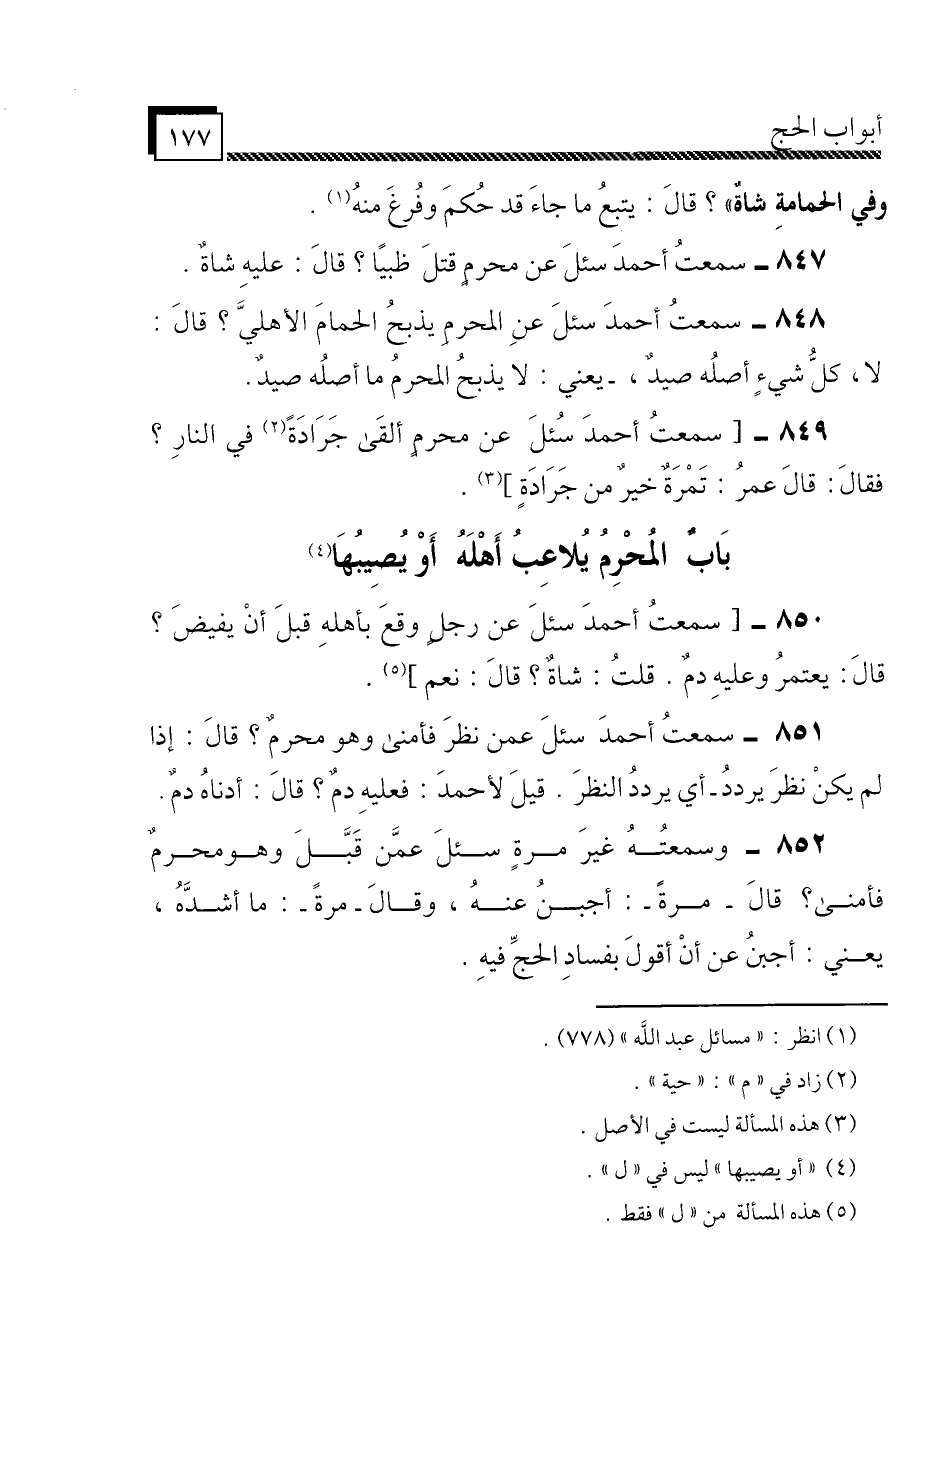 أبواب الحج
١٧٧
وفي الحمامةِ شاةٌ» ؟ قالَ : يتبعُ ما جاءَ قد حُكمَ وفُرغَ منهُ(١) .
٨٤٧ ـ سمعتُ أحمدَ سئلَ عن محرمٍ قتلَ ظبيًا ؟ قالَ : عليهِ شاةٌ .
٨٤٨ ـ سمعتُ أحمدَ سئلَ عنِ المحرمِ يذبحُ الحمامَ الأهليَّ ؟ قالَ :
لا ، كلُّ شيءٍ أصلُه صيدٌ ، ـ يعني : لا يذبحُ المحرمُ ما أصلُه صيدٌ .
٨٤٩ ـ [ سمعتُ أحمدَ سُئلَ عن محرمٍ ألقَى جَرَادَةً(٢) في النارِ ؟
فقالَ : قالَ عمرُ : تَمْرَةٌ خيرٌ من جَرَادَةٍ ](٣) .
بَابُ المُحْرِمُ يُلاعِبُ أَهْلَهُ أَوْ يُصِيبُهَا(٤)
٨٥٠ ـ [ سمعتُ أحمدَ سئلَ عن رجلٍ وقعَ بأهلهِ قبلَ أنْ يفيضَ ؟
قالَ : يعتمرُ وعليهِ دمٌ . قلتُ : شاةٌ ؟ قالَ : نعم ](٥) .
٨٥١ ـ سمعتُ أحمدَ سئلَ عمن نظرَ فأمنىٰ وهو محرمٌ ؟ قالَ : إذا
لم يكنْ نظرَ يرددُ ـ أي يرددُ النظرَ . قيلَ لأحمدَ : فعليهِ دمٌ ؟ قالَ : أدناهُ دمٌ .
٨٥٢ ـ وسمعتُهُ غيرَ مرةٍ سئلَ عمَّن قَبَّلَ وهو محرمٌ
فأمنىٰ ؟ قالَ ـ مرةً ـ : أجبنُ عنهُ ، وقالَ ـ مرةً ـ : ما أشدَّهُ ،
يعني : أجبنُ عن أنْ أقولَ بفسادِ الحجِّ فيهِ .
(١) انظر : « مسائل عبد اللَّه » (٧٧٨) .
(٢) زاد في « م » : « حية » .
(٣) هذه المسألة ليست في الأصل .
(٤) « أو يصيبها » ليس في « ل » .
(٥) هذه المسألة من « ل » فقط .